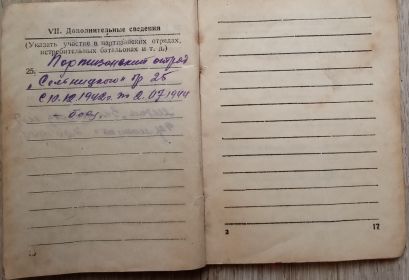 VII. Дополнительные сведения
(Указать участие в партизанских отрядах,
истребительных батальонах и т. д.)
25. Партизанский отряд
"Сельницкого" гр 25
с 10.10.1942 по 2.07.1944
- боец
3 17